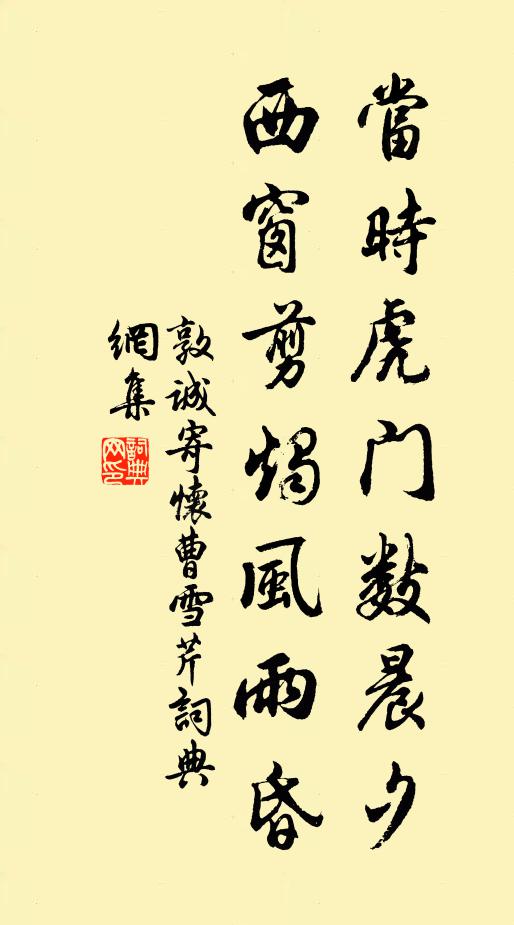 當時虎門數晨夕
西窗剪燭風雨昏
敦誠寄懷曹雪芹詞典
網集
詞典網印